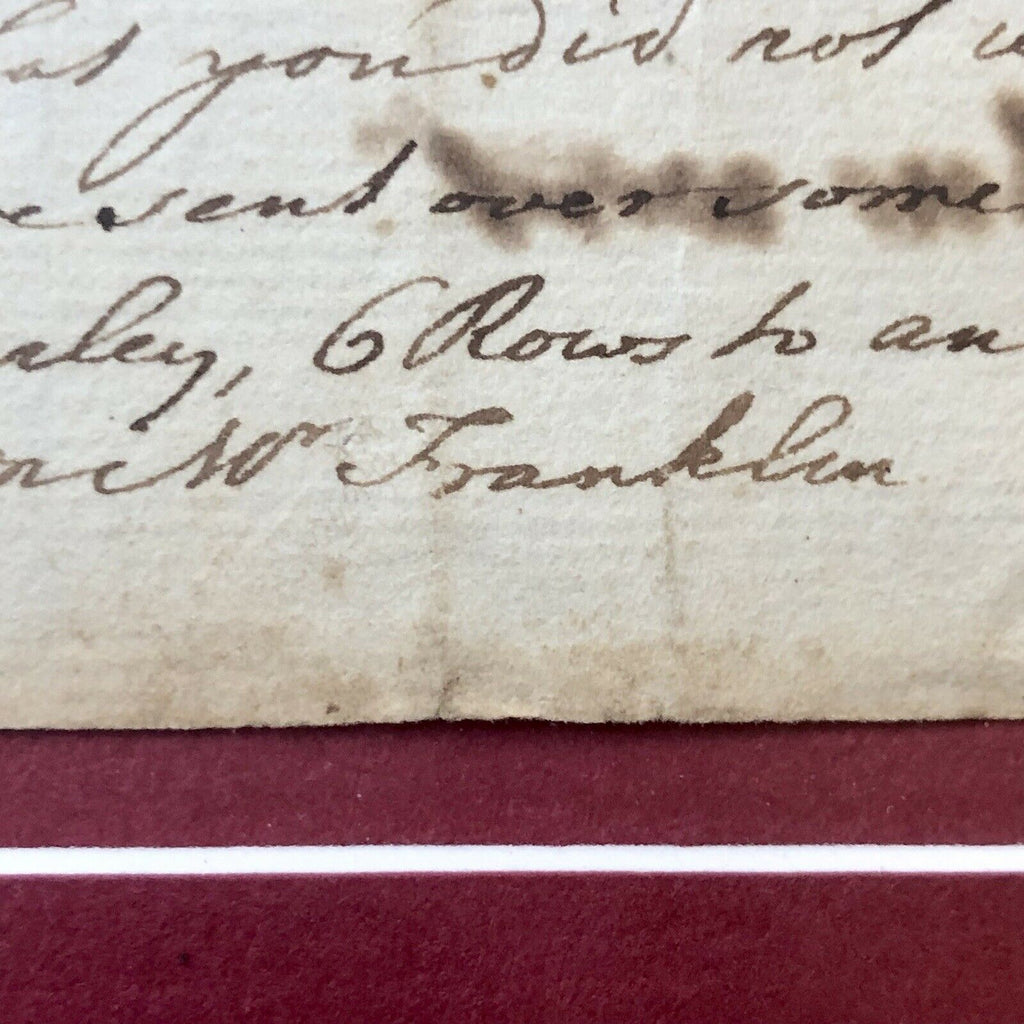 hat you did not
e sent over some
rley, 6 Rows to an
Mr Franklin